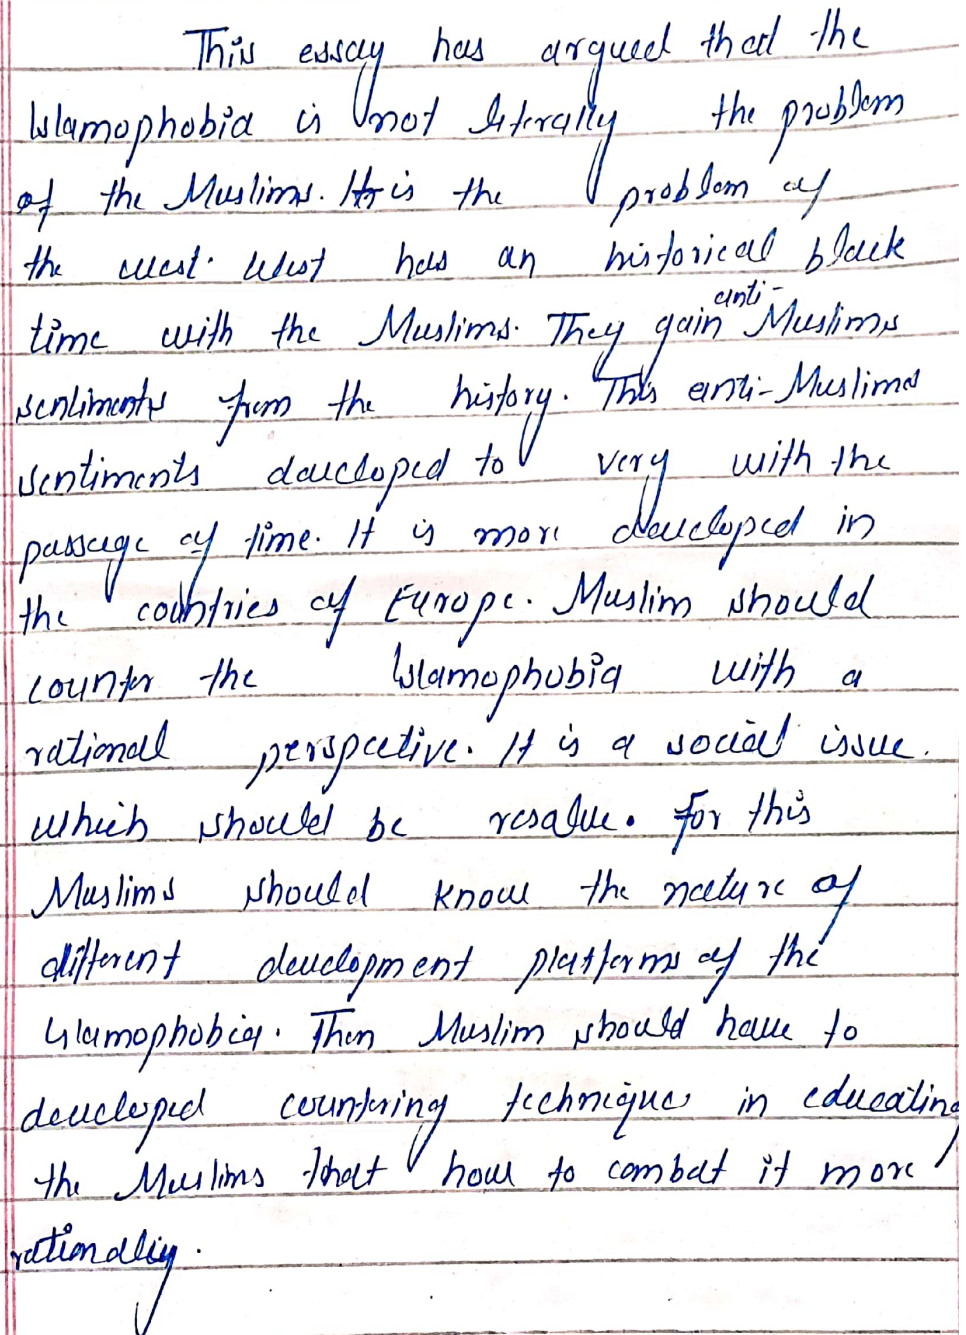 This essay has argued that the
Islamophobia is not literally the problem
of the Muslims. It is the problem of
the west. West has an historical black
time with the Muslims. They gain anti-Muslims
sentiments from the history. This anti-Muslims
sentiments developed to very with the
passage of time. It is more developed in
the countries of Europe. Muslim should
counter the Islamophobia with a
rational perspective. It is a social issue.
which should be resalve. For this
Muslims should know the nature of
different development platforms of the
Islamophobia. Then Muslim should have to
developed countering techniques in educating
the Muslims that how to combat it more
rationally.